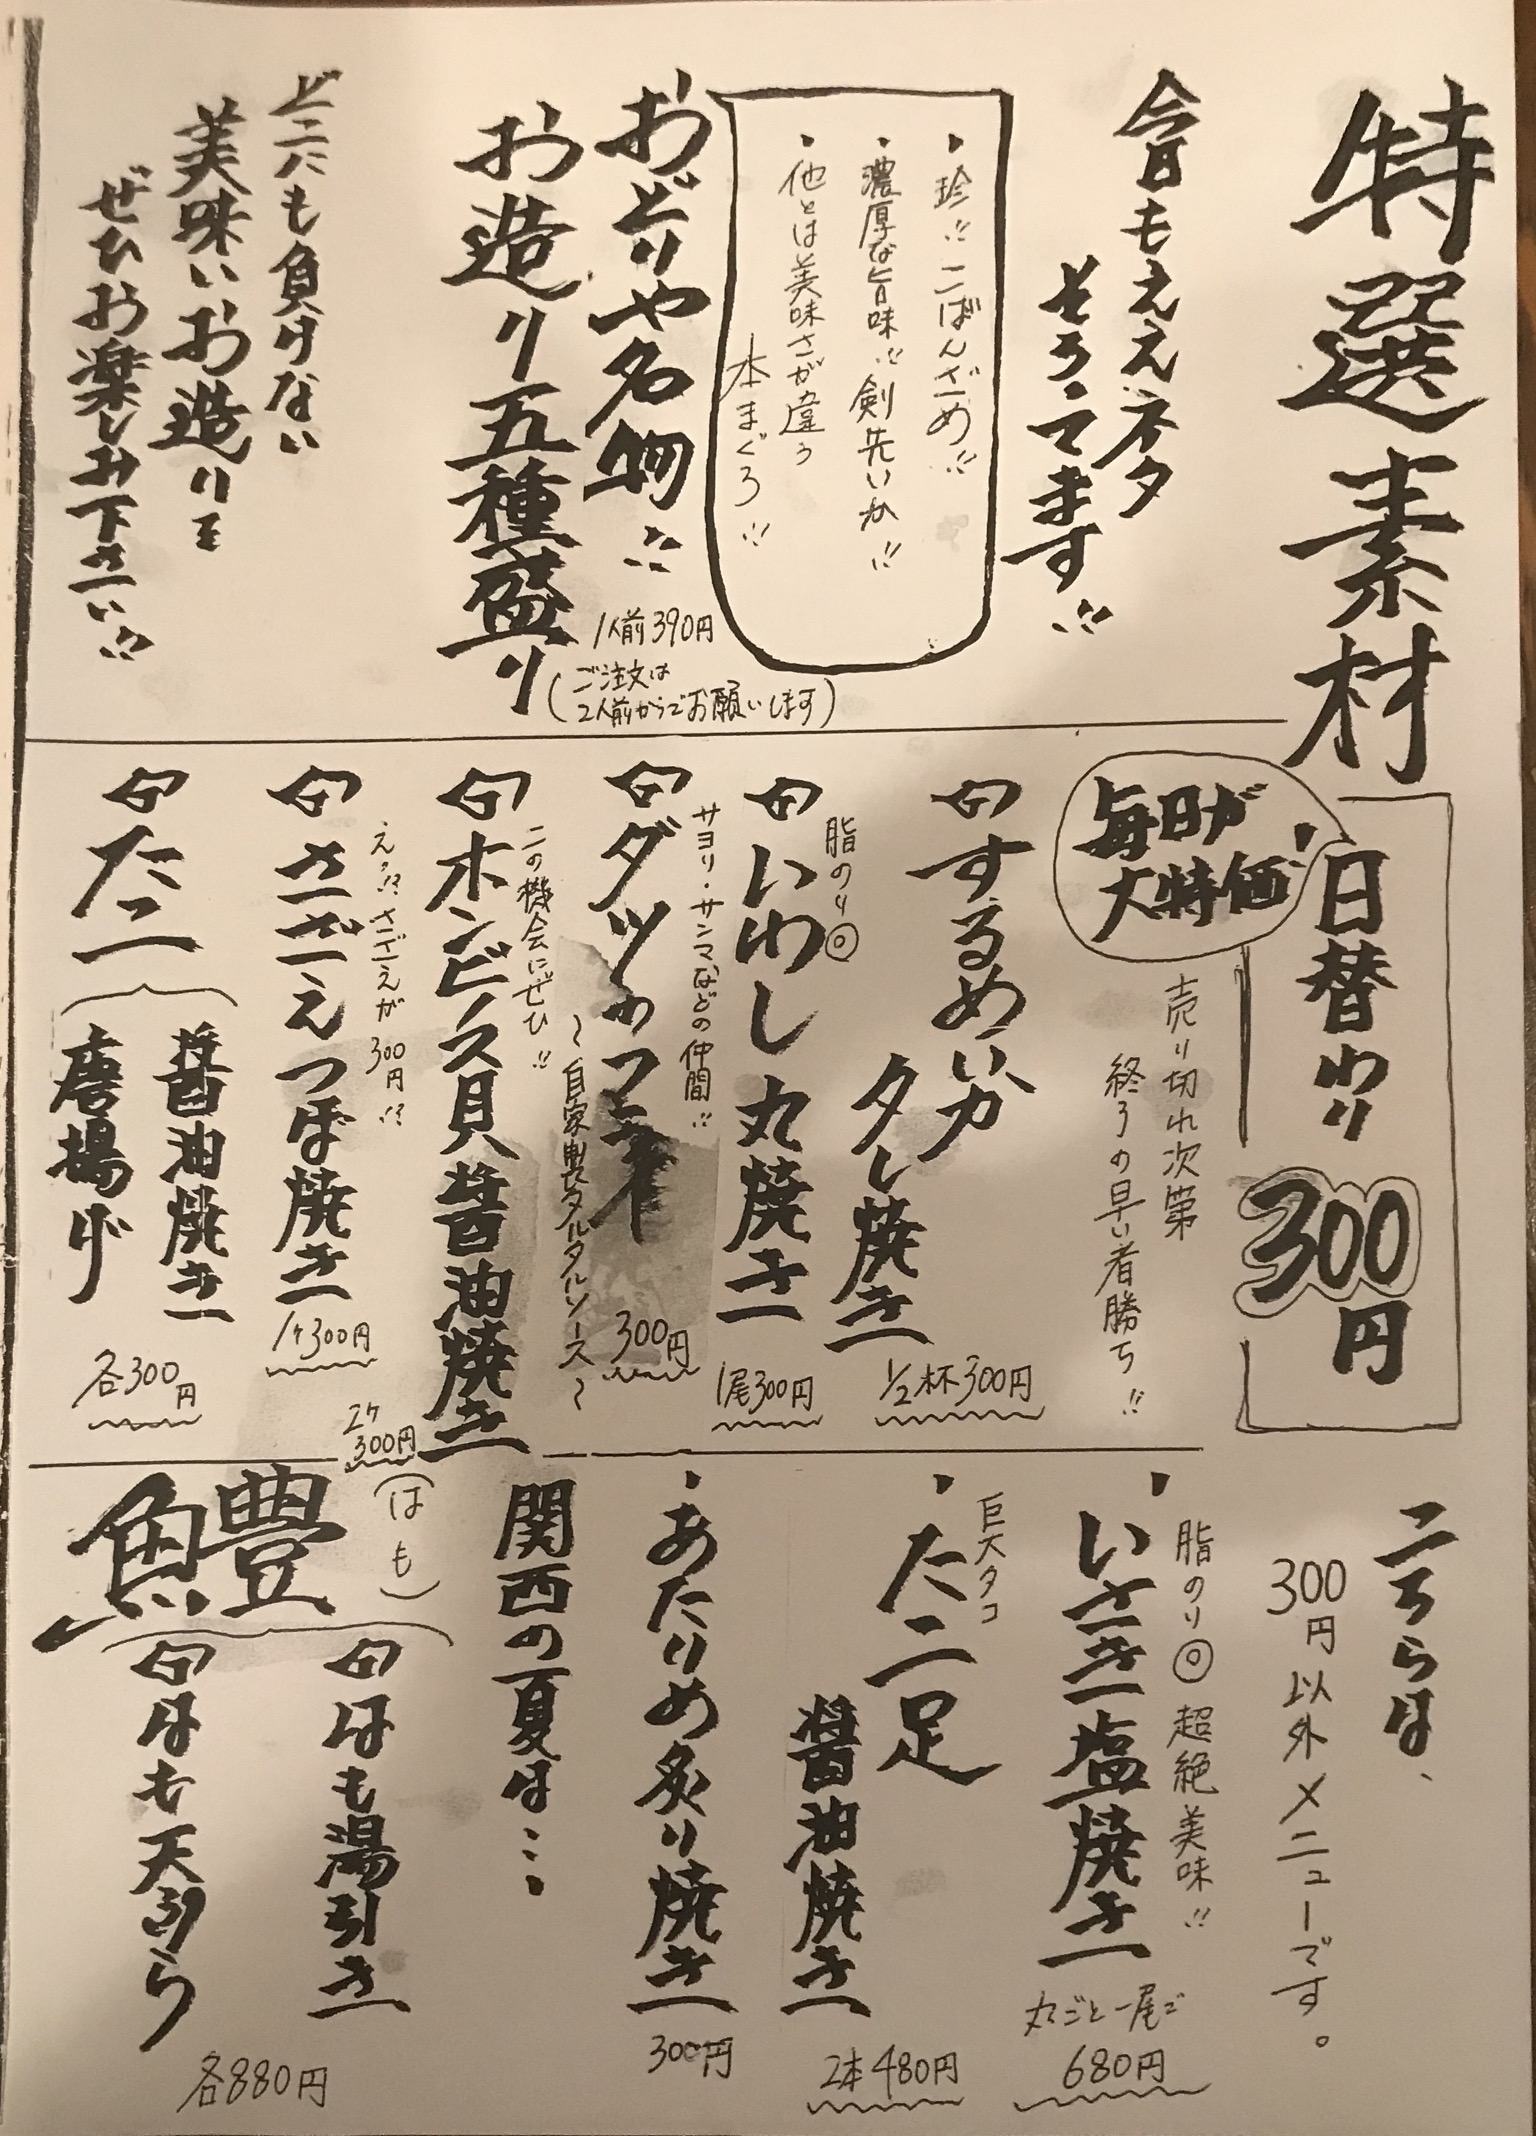 特選素材
今日もええネタ
そろってます!!
・珍!!こばんざめ!!
・濃厚な旨味!!剣先いか!!
・他とは美味さが違う
本まぐろ!!
おどりや名物!!
お造り五種盛り
1人前390円
(ご注文は
2人前からでお願いします)
どこにも負けない
美味いお造りを
ぜひお楽しみ下さい!!
日替わり300円
毎日が
大特価!
売り切れ次第
終了の早い者勝ち!!
するめいか
タレ焼き
1/2杯300円
脂のり◎
いわし丸焼き
1尾300円
サヨリ・サンマなどの仲間!!
ダツのフライ
300円
〜自家製タルタルソース〜
この機会にぜひ!!
ホンビノス貝醤油焼き
2ケ
300円
えっ!?さざえが300円!!?
さざえつぼ焼き
1ケ300円
たこ
醤油焼き
唐揚げ
各300円
こちらは、
300円以外メニューです。
脂のり◎超絶美味!!
・いさき塩焼き
丸ごと一尾で
680円
巨大タコ
・たこ足
醤油焼き
2本480円
・あたりめ炙り焼き
300円
関西の夏は…
(はも)
鱧
はも湯引き
はも天ぷら
各880円